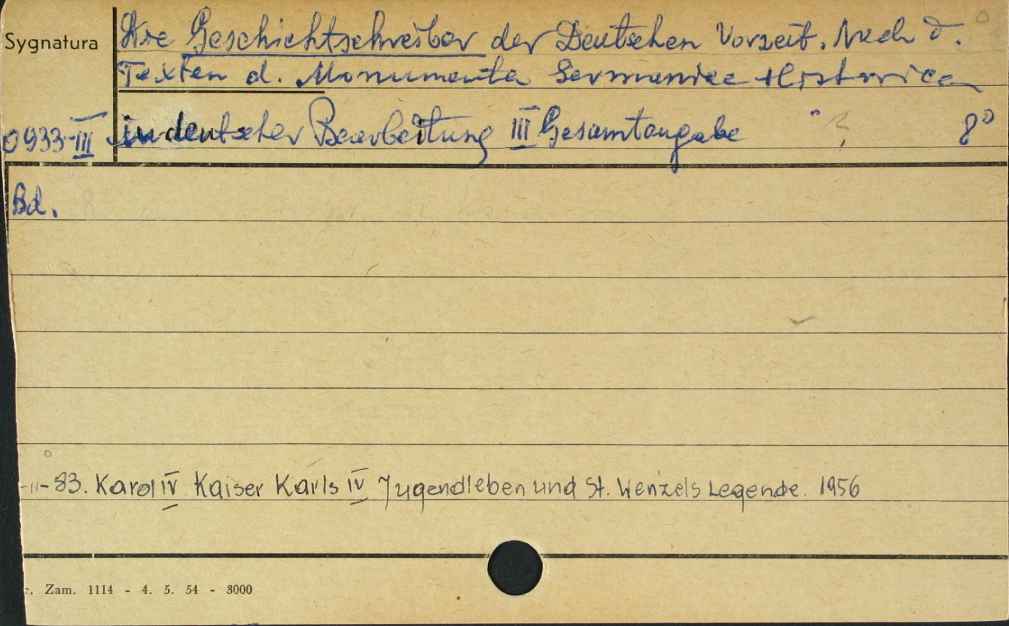 Sygnatura
Die Geschichtschreiber der Deutschen Vorzeit. Nach d.
Texten d. Monumenta Germaniae Historica
0933-III in deutscher Bearbeitung III Gesamtausgabe 8°
Bd.
-"- 83. Karol IV Kaiser Karls IV Jugendleben und St. Wenzels Legende. 1956
. Zam. 1114 - 4. 5. 54 - 3000